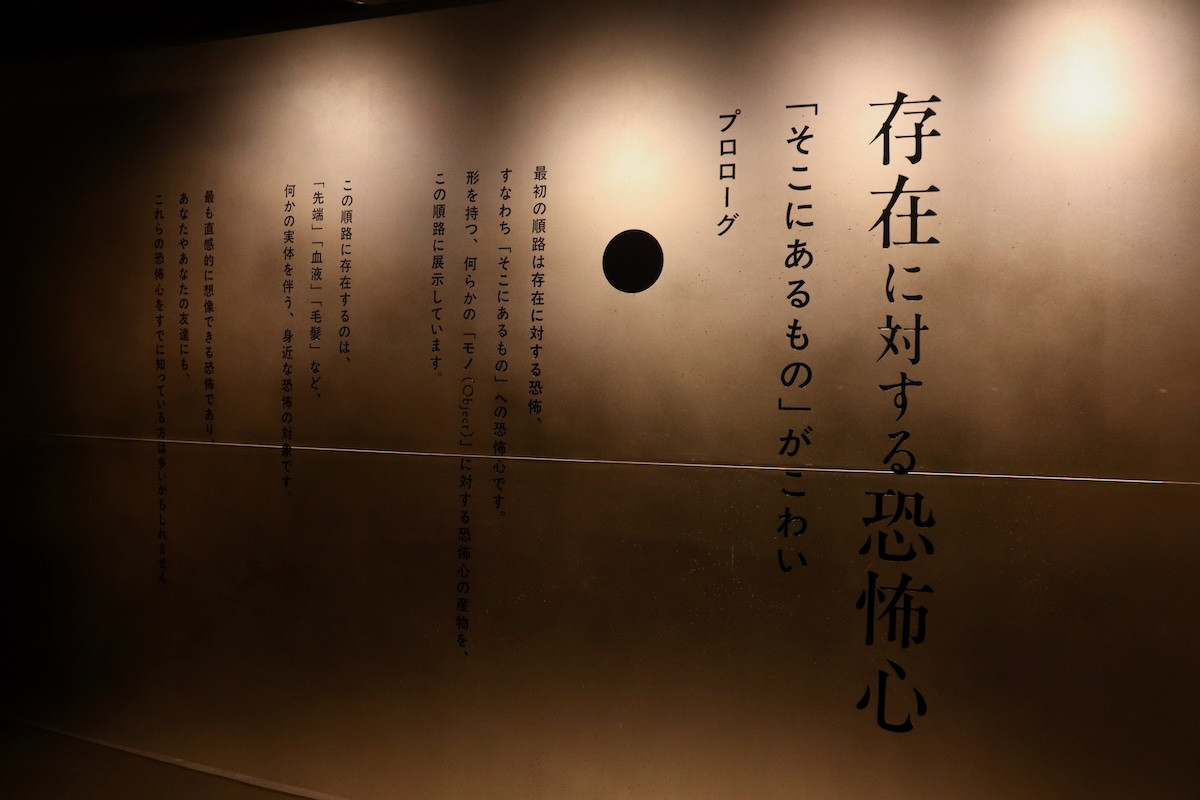 存在に対する恐怖心
「そこにあるもの」がこわい
プロローグ
最初の順路は存在に対する恐怖、
すなわち「そこにあるもの」への恐怖心です。
形を持つ、何らかの「モノ(Object)」に対する恐怖心の産物を、
この順路に展示しています。
この順路に存在するのは、
「先端」「血液」「毛髪」など、
何かの実体を伴う、身近な恐怖の対象です。
最も直感的に想像できる恐怖であり、
あなたやあなたの友達にも、
これらの恐怖心をすでに知っている方は多いかもしれません。